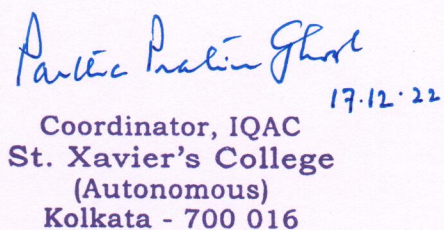 Partha Pratim Ghosh
17.12.22
Coordinator, IQAC
St. Xavier's College
(Autonomous)
Kolkata - 700 016